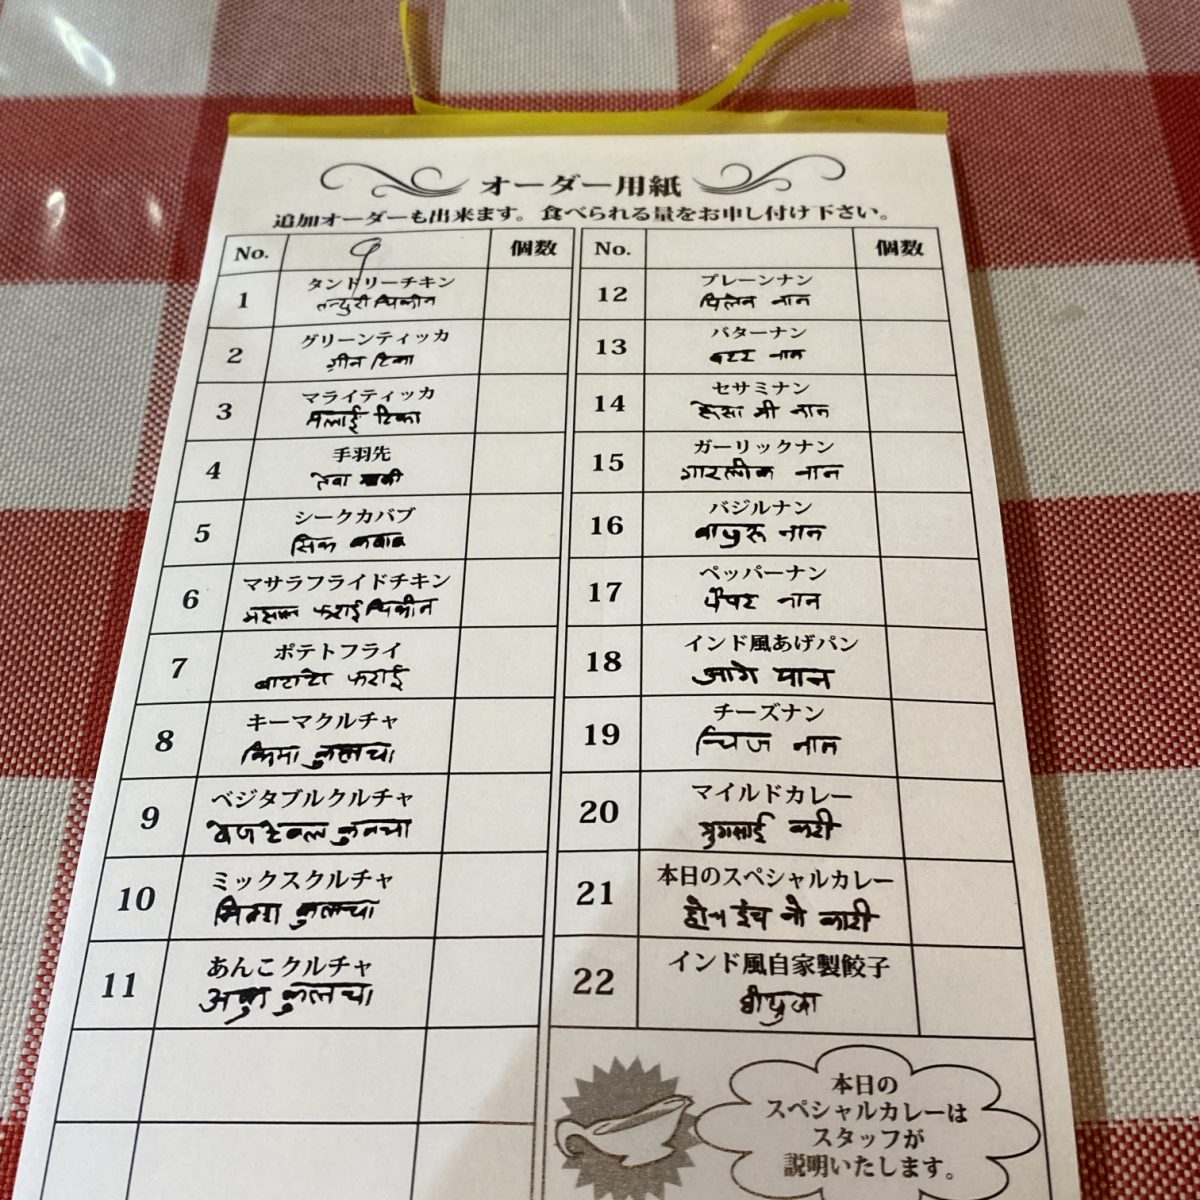 オーダー用紙
追加オーダーも出来ます。食べられる量をお申し付け下さい。
No. 9 個数
1 タンドリーチキン
तन्दुरी चिकीन
2 グリーンティッカ
ग्रीन टिका
3 マライティッカ
मलाई टिका
4 手羽先
तेवा
5 シークカバブ
सिक कवाव
6 マサラフライドチキン
मसला फराई चिकीन
7 ポテトフライ
फराई
8 キーマクルチャ
किमा कुलचा
9 ベジタブルクルチャ
वेजटेवल कुलचा
10 ミックスクルチャ
मिक्स कुलचा
11 あんこクルチャ
कुलचा
No. 個数
12 プレーンナン
पिलेन नान
13 バターナン
वटर नान
14 セサミナン
सेसा मी नान
15 ガーリックナン
गारलीक नान
16 バジルナン
वाजुरु नान
17 ペッパーナン
पेपर नान
18 インド風あげパン
आगे पान
19 チーズナン
चिज नान
20 マイルドカレー
मुगलाई करी
21 本日のスペシャルカレー
होन इच नो कारी
22 インド風自家製餃子
本日の
スペシャルカレーは
スタッフが
説明いたします。